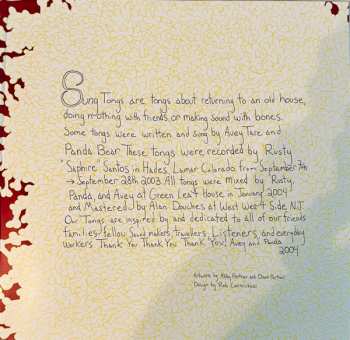 Sung Tongs are tongs about returning to an old house,
doing nothing with friends or making sound with bones.
Some tongs were written and sung by Avey Tare and
Panda Bear. These Tongs were recorded by Rusty
"Saphire" Santos in Hades, Lamar Colorado from September 7th
→ September 28th 2003. All tongs were mixed by Rusty,
Panda, and Avey at Green Leaf House in January 2004
and Mastered by Alan Douches at West West Side N.J.
Our Tongs are inspired by and dedicated to all of our friends
families, fellow Sound makers, travellers, Listeners, and everyday
workers Thank You Thank You Thank You! Avey and Panda
2004
Artwork by Abby Portner and
Design by Rob Carmichael